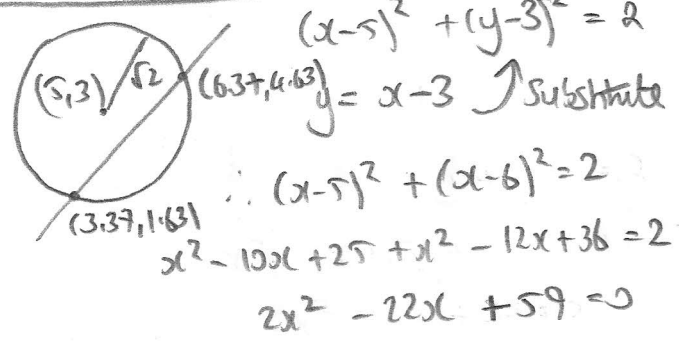 (x-5)² + (y-3)² = 2
(5,3) √2 (6.37,4.63) y = x-3 ↗ Substitute
∴ (x-5)² + (x-6)² = 2
(3.37,1.63)
x² - 10x + 25 + x² - 12x + 36 = 2
2x² - 22x + 59 = 0